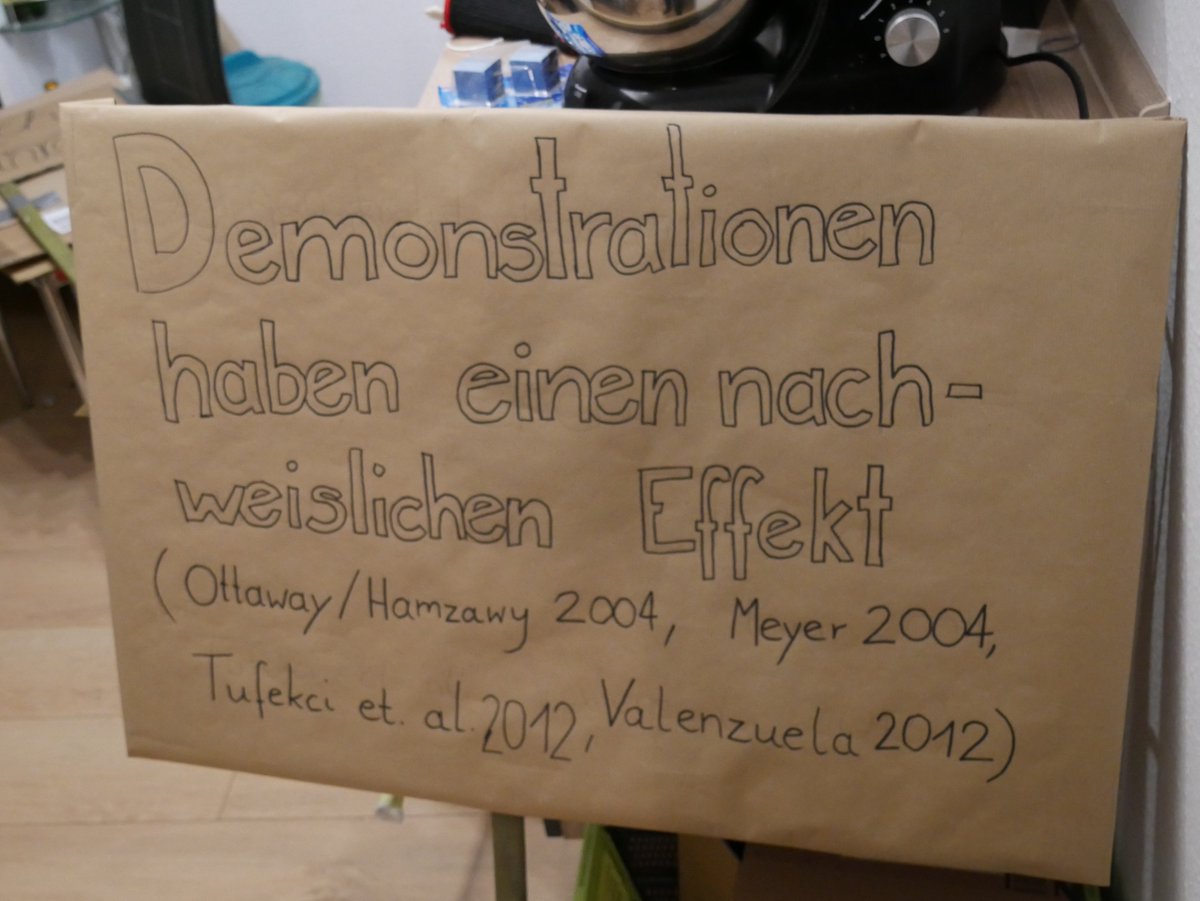 Demonstrationen
haben einen nach-
weislichen Effekt
(Ottaway/Hamzawy 2004, Meyer 2004,
Tufekci et. al. 2012, Valenzuela 2012)